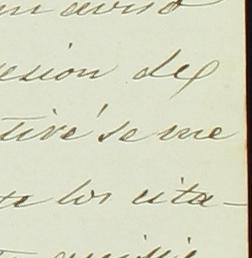 un aviso
esion del
tiré se me
te los cita-